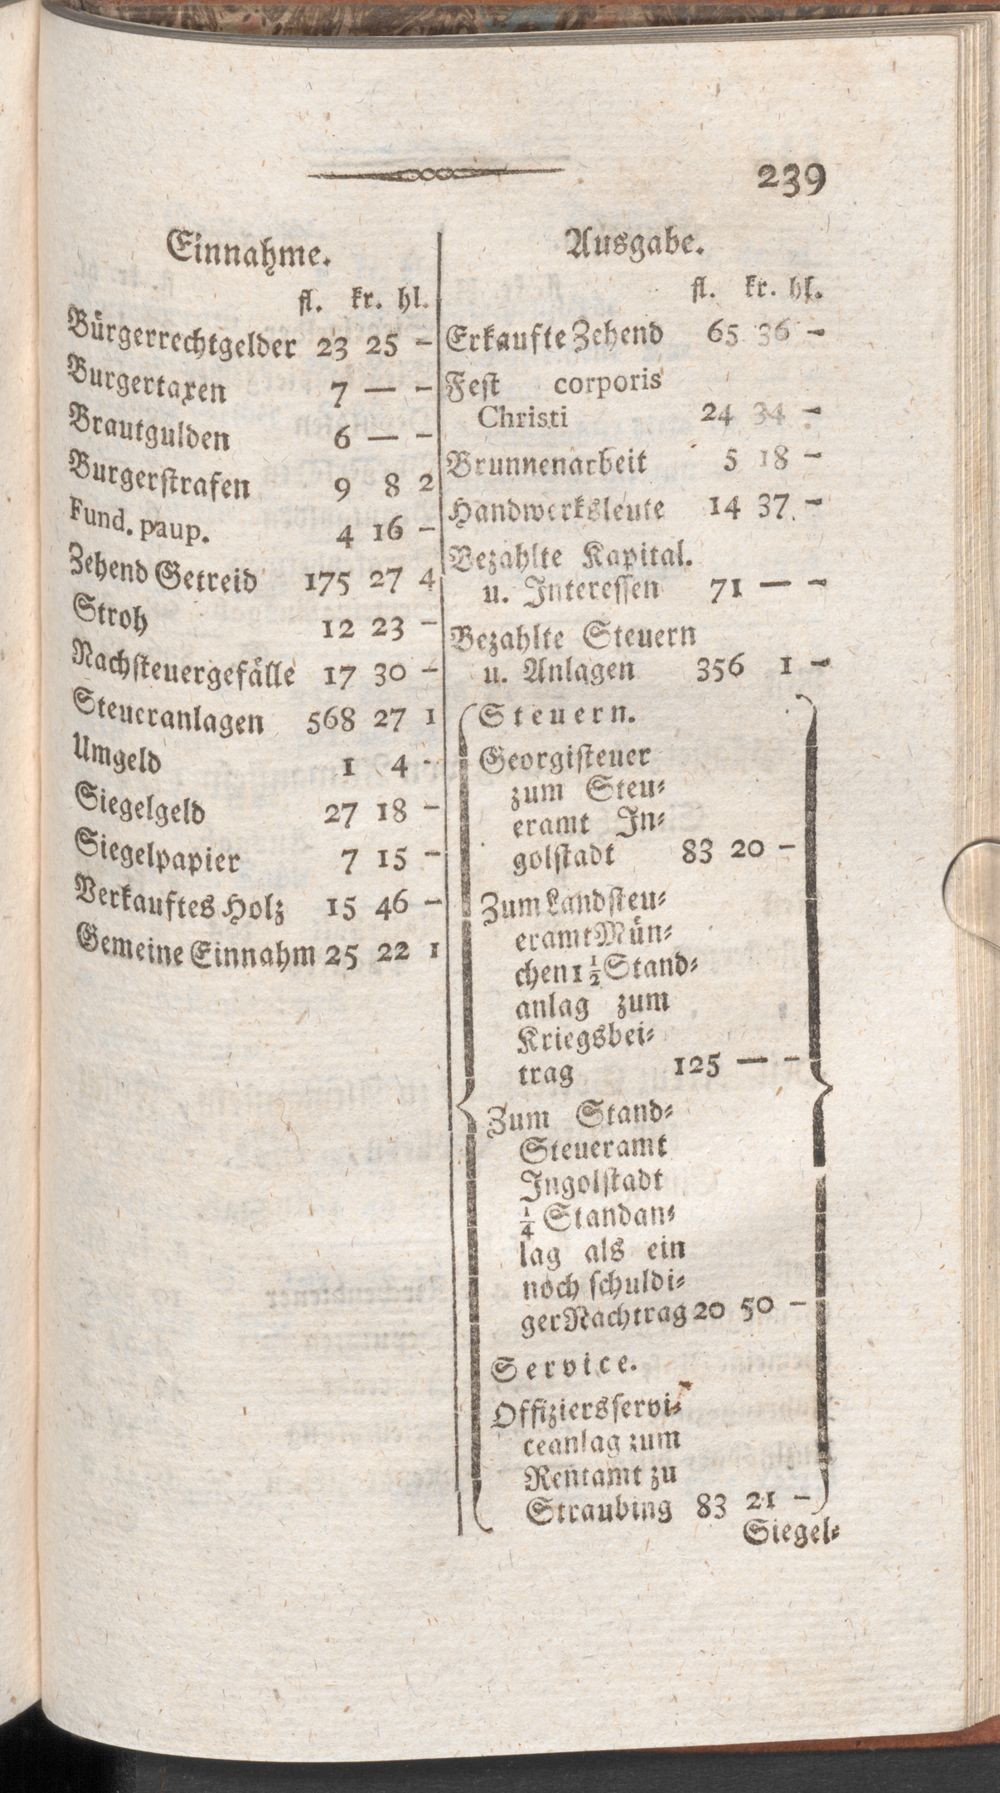 239
Einnahme.
fl. kr. hl.
Bürgerrechtgelder 23 25 –
Burgertaxen 7 — –
Brautgulden 6 — –
Burgerstrafen 9 8 2
Fund. paup. 4 16 –
Zehend Getreid 175 27 4
Stroh 12 23 –
Nachsteuergefälle 17 30 –
Steueranlagen 568 27 1
Umgeld 1 4 –
Siegelgeld 27 18 –
Siegelpapier 7 15 –
Verkauftes Holz 15 46 –
Gemeine Einnahm 25 22 1
Ausgabe.
fl. kr. hl.
Erkaufte Zehend 65 36 –
Fest corporis
Christi 24 34 –
Brunnenarbeit 5 18 –
Handwerksleute 14 37 –
Bezahlte Kapital.
u. Interessen 71 — –
Bezahlte Steuern
u. Anlagen 356 1 –
Steuern.
Georgisteuer
zum Steu⸗
eramt In⸗
golstadt 83 20 –
Zum Landsteu⸗
eramt Mün⸗
chen 1 1/2 Stand⸗
anlag zum
Kriegsbei⸗
trag 125 — –
Zum Stand⸗
Steueramt
Ingolstadt
1/4 Standan⸗
lag als ein
noch schuldi⸗
ger Nachtrag 20 50 –
Service.
Offiziersservi⸗
ceanlag zum
Rentamt zu
Straubing 83 21 –
Siegel⸗